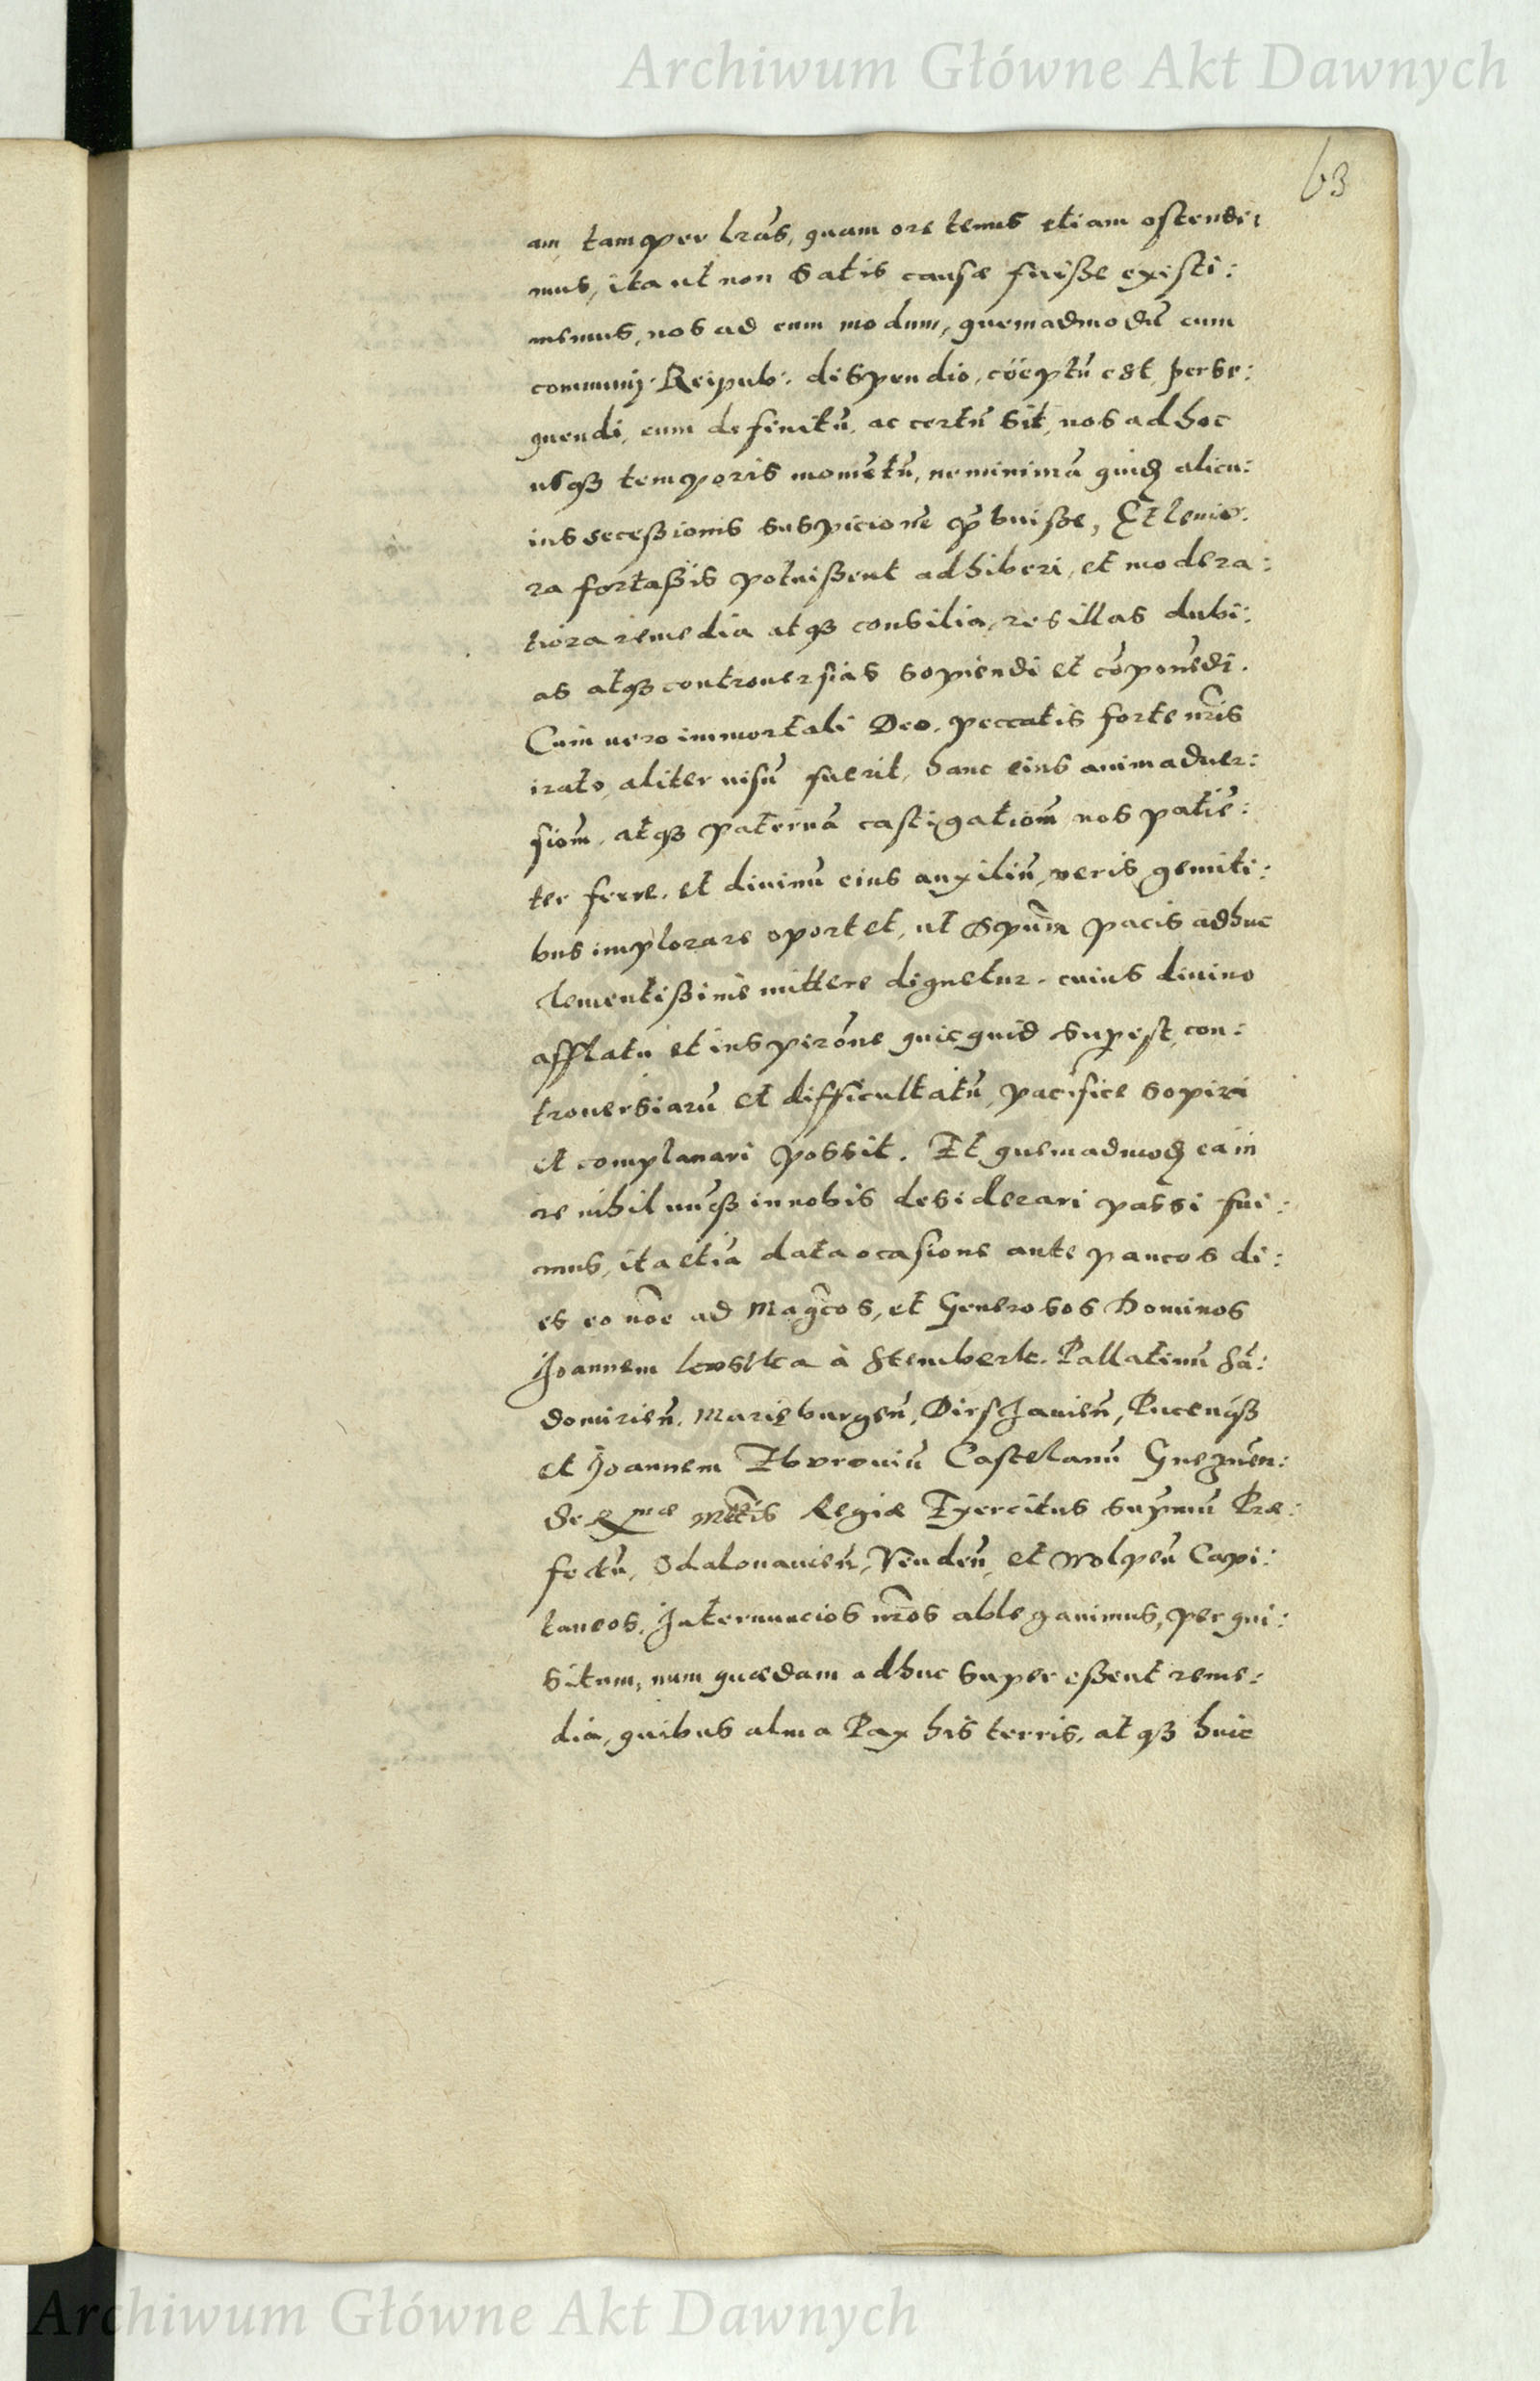 Archiwum Główne Akt Dawnych
63
am, tam per lrãs, quam ore tenus etiam ostendi:
mus, ita ut non satis causæ fuiße existi:
memus, nos ad eum modum, quemadmodũ cum
communi Reipub: dispendio, cöeptũ est, perse:
quendi, cum definitũ, ac certũ sit, nos ad hoc
usq3 temporis momẽtũ, ne minimã quidẽ alicu:
ius seceßionis suspicionẽ p̃buiße, Et lenio:
ra fortaßis potuißent adhiberi, et modera:
tiora remedia atq3 consilia, res illas dubi:
as atq3 controuersias sopiendi et cõponẽdi.
Cum uero immortali Deo, peccatis forte nr̃is
irato, aliter uisũ fuerit, hanc eius animaduer:
siom̃, atq3 paternã castigatiom̃ nos patiẽ:
ter ferre, et diuinũ eius auxiliũ, veris gemiti:
bus implorare oportet, ut Spum̃ pacis adhuc
clementißimè mittere dignetur, cuius diuino
afflatu et inspirõne quicquid superest, con:
trouersiarũ et difficultatũ, pacifice sopiri
et complanari possit. Et quemadmodũ ea in
re nihil unq̃3 in nobis desiderari passi fui:
mus, ita etiã data ocasione ante paucos di:
es eo noe ad Magc̃os, et Generosos Dominos
Joannem Kostka à Stemberk. Pallatinũ Sã:
domirieñ. Marieburgeñ, Dirsżauieñ, Pucenq̃3
et Joannem Zborouiũ Castelanũ Gnezneñ:
Seren^mæ Mtt̃is Regiæ Exercitus supmũ Præ:
fectũ, Odalonauieñ, Vendeñ, et Wolpeñ Capi:
taneos, Internuncios nr̃os ablegauimus, perqui:
situm, num quædam adhuc super eßent reme:
dia, quibus alma Pax his terris, atq3 huic
Archiwum Główne Akt Dawnych